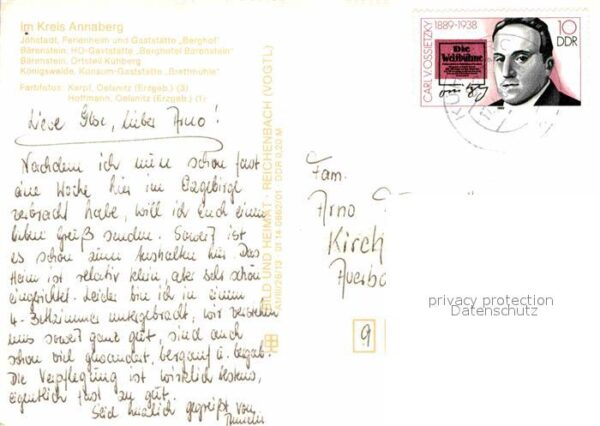 im Kreis Annaberg
Jöhstadt, Ferienheim und Gaststätte „Berghof"
Bärenstein, HO-Gaststätte „Berghotel Bärenstein"
Bärenstein, Ortsteil Kühberg
Königswalde, Konsum-Gaststätte „Brettmühle"
Farbfotos: Karpf, Oelsnitz (Erzgeb.) (3)
Hoffmann, Oelsnitz (Erzgeb.) (1)
Liebe Ilse, lieber Arno!
Nachdem ich nun schon fast
eine Woche hier im Erzgebirge
verbracht habe, will ich Euch einen
lieben Gruß senden. Soweit ist
es schön zum Aushalten hier. Das
Heim ist relativ klein, aber sehr schön
eingerichtet. Leider bin ich in einem
4-Bettzimmer untergebracht, wir verstehen
uns soweit ganz gut, sind auch
schon viel gewandert, bergauf u. bergab.
Die Verpflegung ist wirklich bestens,
eigentlich fast zu gut.
Seid herzlich gegrüßt von
BILD UND HEIMAT · REICHENBACH (VOGTL)
01 14 0662/01 DDR 0,20 M
CARL V. OSSIETZKY 1889-1938
Die
Weltbühne
10
DDR
Fam.
Arno
Kirch
Auerba
9
privacy protection
Datenschutz